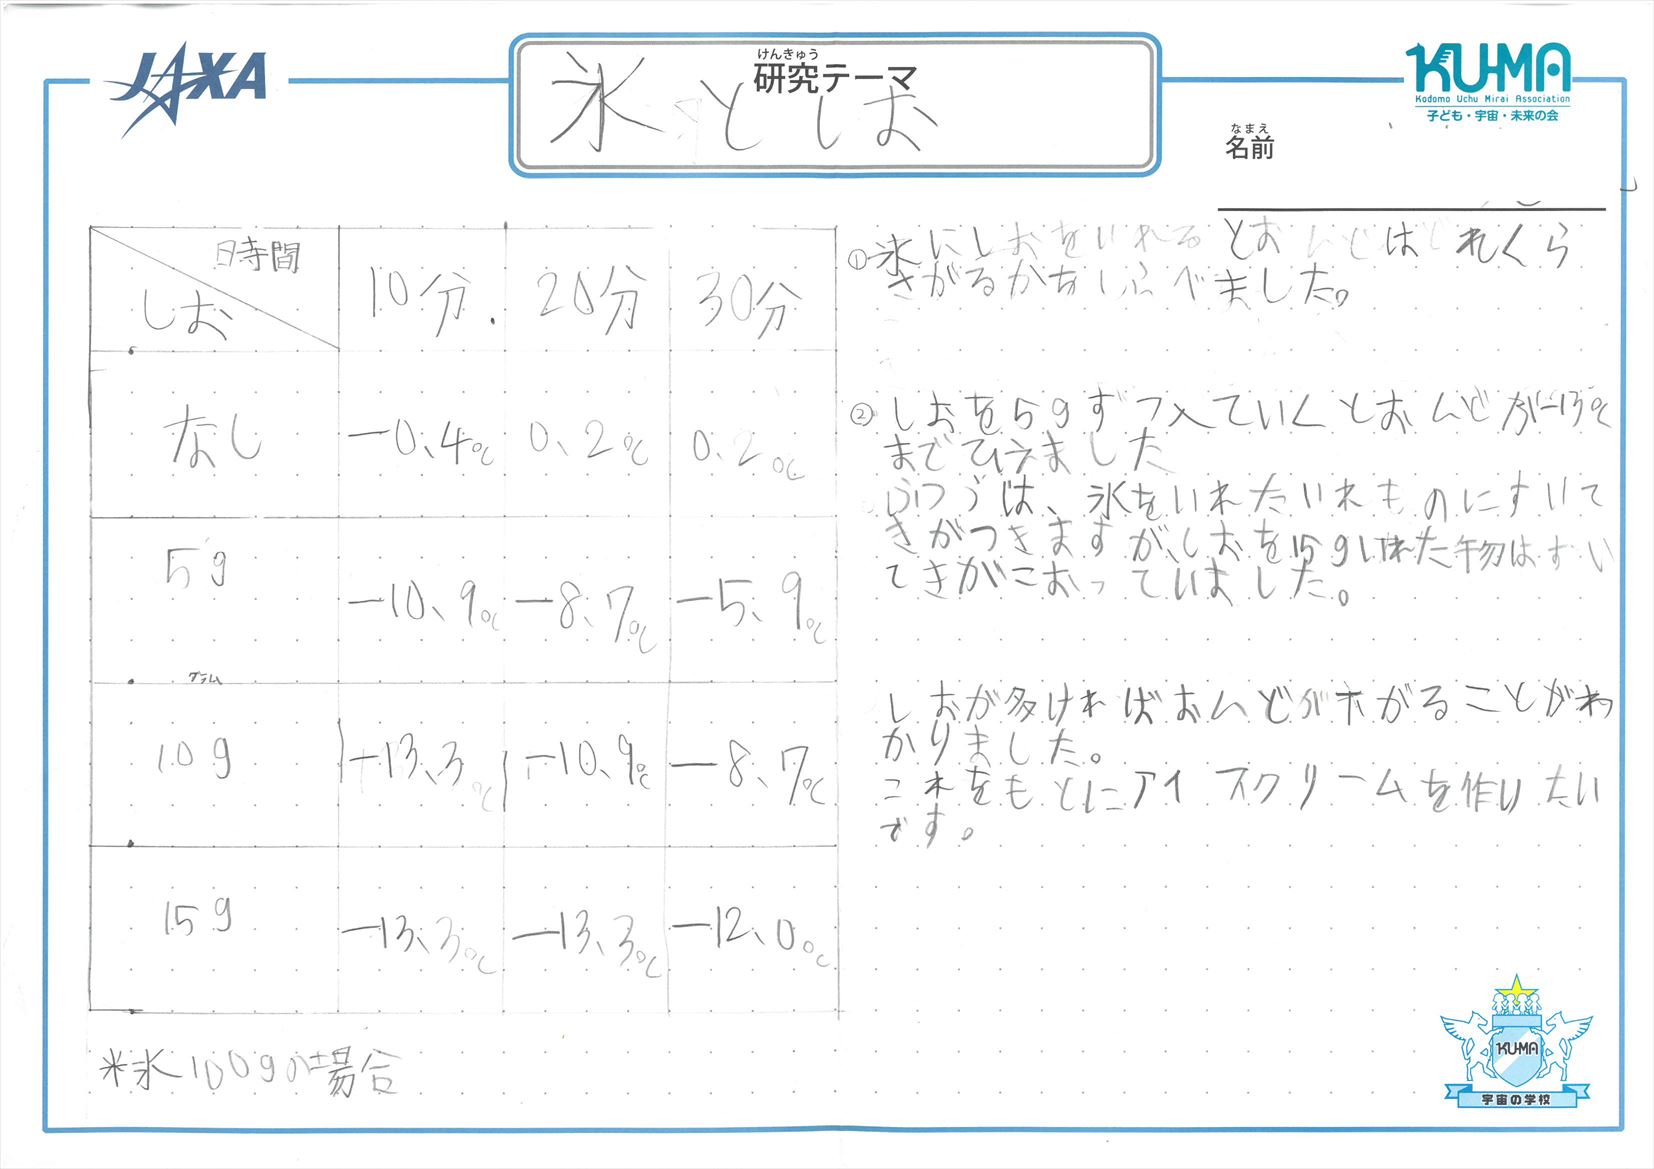 JAXA
けんきゅう
研究テーマ
氷としお
KU-MA
Kodomo Uchu Mirai Association
子ども・宇宙・未来の会
なまえ
名前
時間
しお
10分 20分 30分
なし -0.4℃ 0.2℃ 0.2℃
5g -10.9℃ -8.7℃ -5.9℃
グラム
10g -13.3℃ -10.9℃ -8.7℃
15g -13.3℃ -13.3℃ -12.0℃
※氷100gの場合
①氷にしおをいれるとおんどはどれくら
さがるかをしらべました。
②しおを5gずつ入ていくとおんどが-13℃
までひえました
ふつうは、氷をいれたいれものにすいて
きがつきますが、しおを15gいれた物はすい
てきがこおっていました。
しおが多ければおんどがサがることがわ
かりました。
これをもとにアイスクリームを作りたい
です。
KU-MA
宇宙の学校